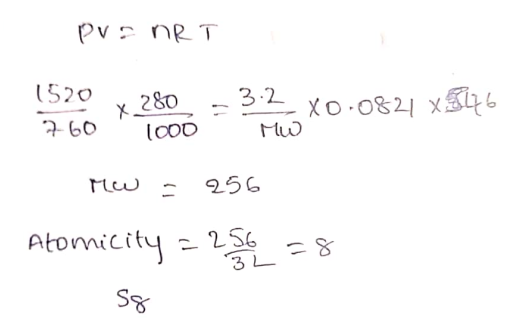 PV = nRT
1520/760 × 280/1000 = 3.2/MW × 0.0821 × 546
MW = 256
Atomicity = 256/32 = 8
S8